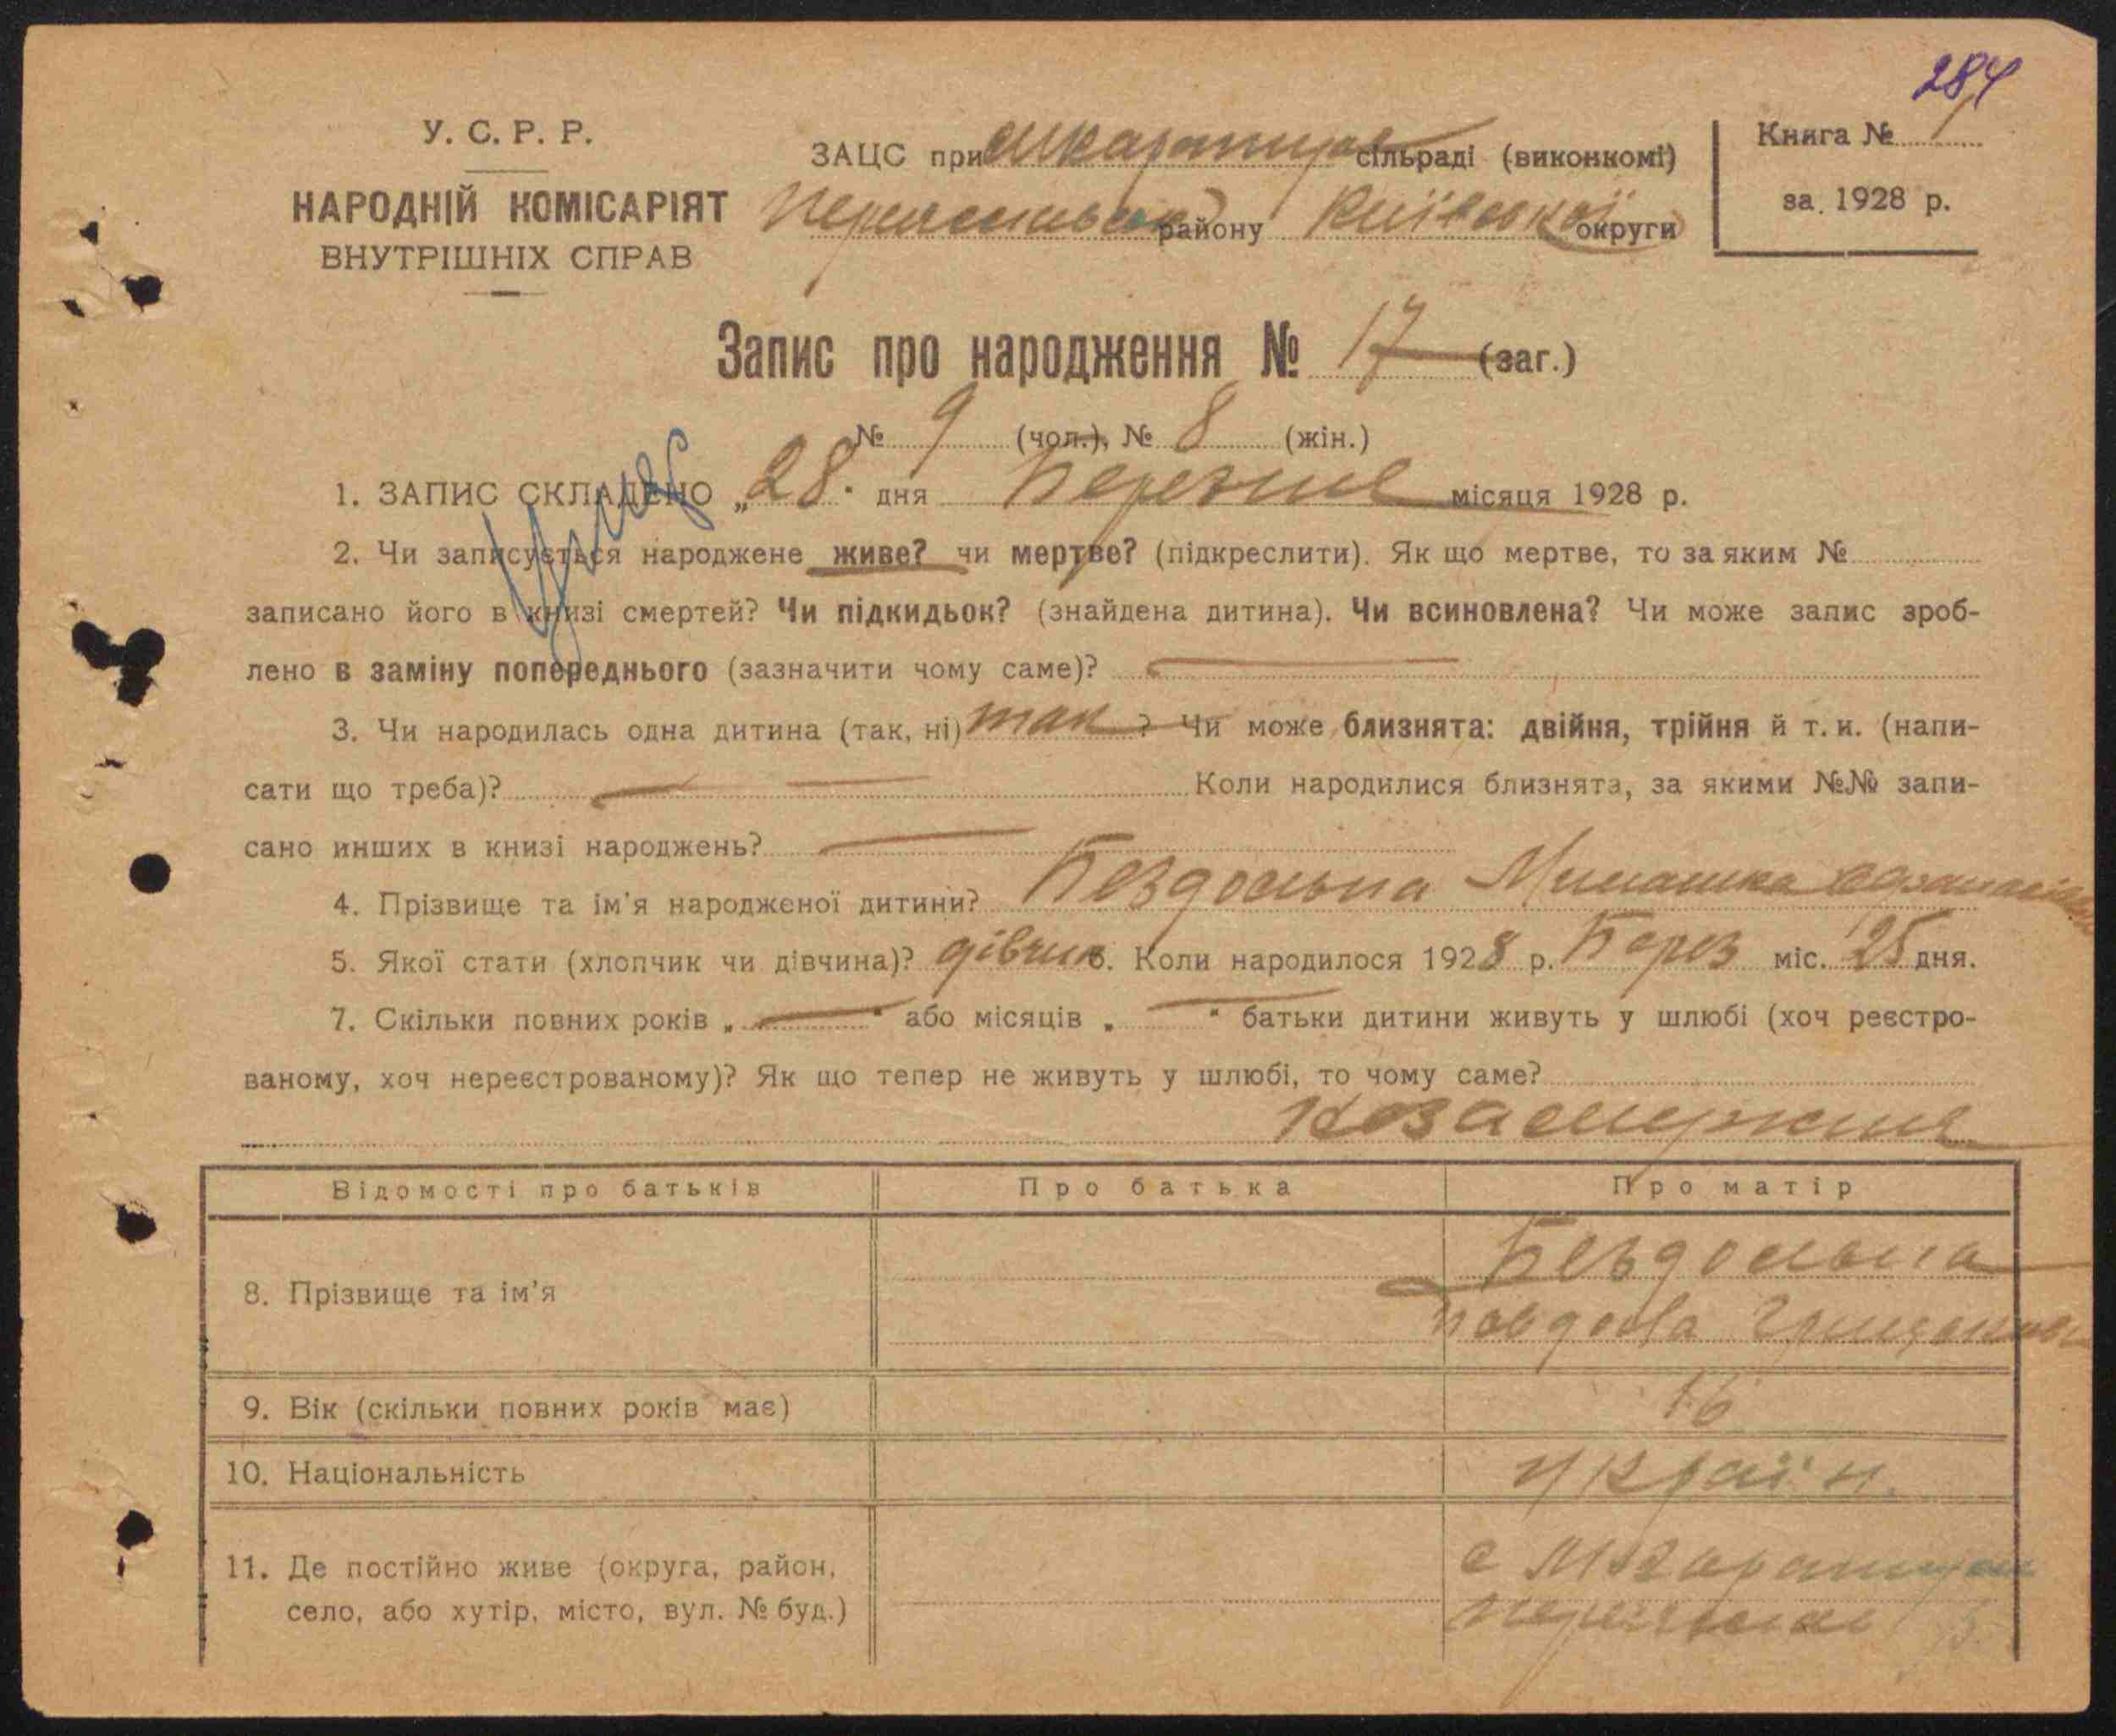 284
У. С. Р. Р.
НАРОДНІЙ КОМІСАРІЯТ
ВНУТРІШНІХ СПРАВ
ЗАЦС при сільраді (виконкомі)
району Київської округи
Книга №
за 1928 р.
Запис про народження № 17 (заг.)
№ 9 (чол.), № 8 (жін.)
1. ЗАПИС СКЛАДЕНО „28" дня Березня місяця 1928 р.
2. Чи записується народжене живе? чи мертве? (підкреслити). Як що мертве, то за яким №
записано його в книзі смертей? Чи підкидьок? (знайдена дитина). Чи всиновлена? Чи може запис зроб-
лено в заміну попереднього (зазначити чому саме)? —
3. Чи народилась одна дитина (так, ні) так ? Чи може близнята: двійня, трійня й т. и. (напи-
сати що треба)? — — Коли народилися близнята, за якими №№ запи-
сано инших в книзі народжень? —
4. Прізвище та ім'я народженої дитини? Бездольна
5. Якої стати (хлопчик чи дівчина)? дівчин 6. Коли народилося 1928 р. Берез міс. 25 дня.
7. Скільки повних років „—" або місяців „—" батьки дитини живуть у шлюбі (хоч реєстро-
ваному, хоч нереєстрованому)? Як що тепер не живуть у шлюбі, то чому саме?
Відомості про батьків Про батька Про матір
8. Прізвище та ім'я Бездольна
9. Вік (скільки повних років має) 16
10. Національність україн.
11. Де постійно живе (округа, район,
село, або хутір, місто, вул. № буд.)
с